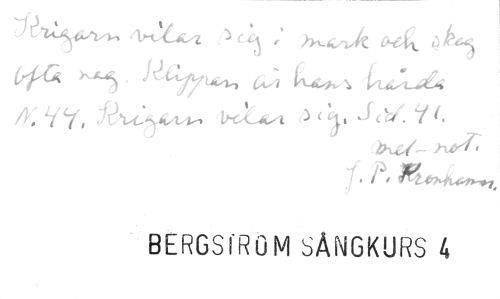 Krigarn vilar sig i mark och skog
ofta nog. Klippan är hans hårda
N. 44. Krigarn vilar sig. Sid. 41.
mel-not.
J. P. Kronhamn.
BERGSTRÖM SÅNGKURS 4